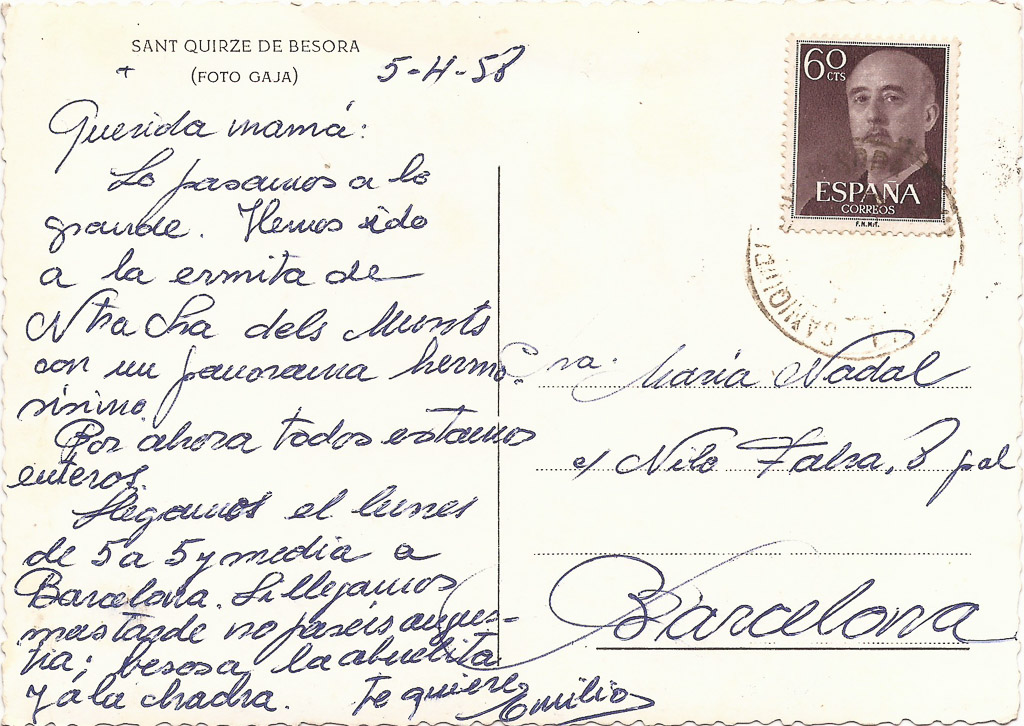 SANT QUIRZE DE BESORA
(FOTO GAJA)
5-4-58
Querida mamá:
Lo pasamos a lo
grande. Hemos sido
a la ermita de
Ntra Sra dels Munts
con un panorama hermo-
sísimo
Por ahora todos estamos
enteros.
Llegamos el lunes
de 5 a 5 y media a
Barcelona. Si llegamos
mas tarde no paséis angus-
tia; besos a la abuelita
y a la chacha. Te quiere
Emilio
60
CTS
ESPAÑA
CORREOS
F.N.M.T.
Sra. María Nadal
c/ Nilo Fabra, 8 pal
Barcelona